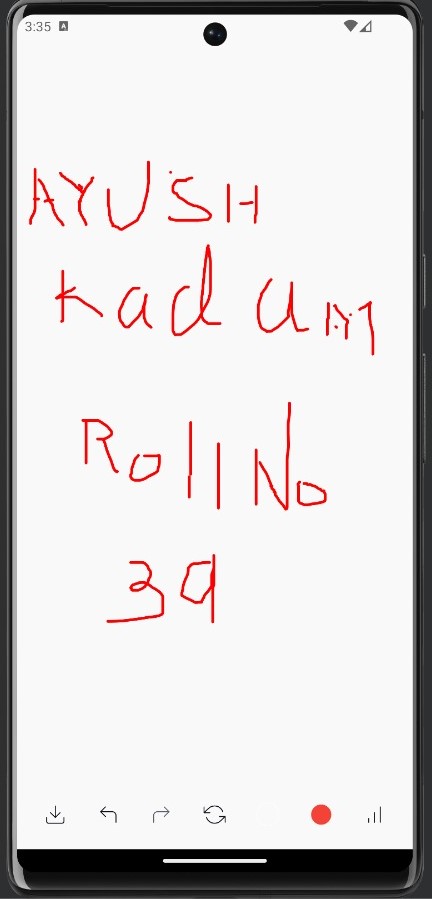 3:35
AYUSH
Kadam
Roll No
39